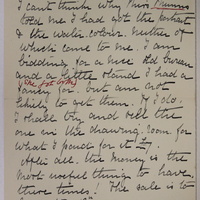 I can't think why Miss Munns
told me I had got the
& the water-colour. Neither of
which came to me. I am
bidding for a nice old bureau
and a little stand I had a
fancy for but am not
likely to get them. If I do.
I shall try and sell the
one in the drawing room for
what I paid for it £7.
After all. the money is the
most useful thing to have,
these times! The sale is to